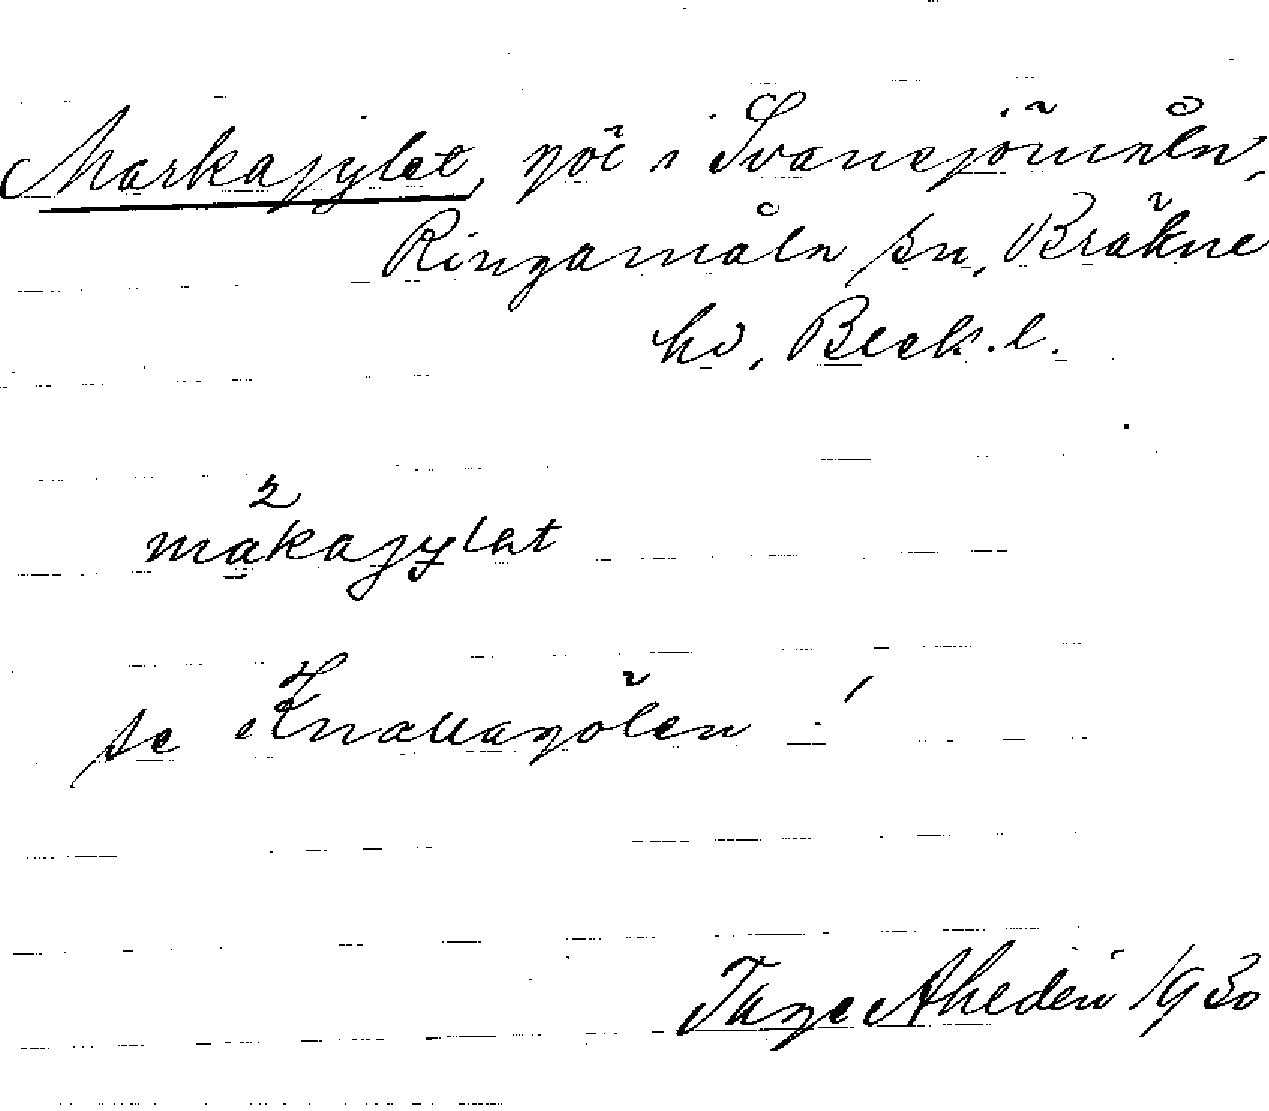 Markajylet, göl i Svansjömåln,
Ringamåln sn, Bräkne
hd, Blek. l.
2
måkajylet
se Knallagölen!
Tage Ahedén 1930